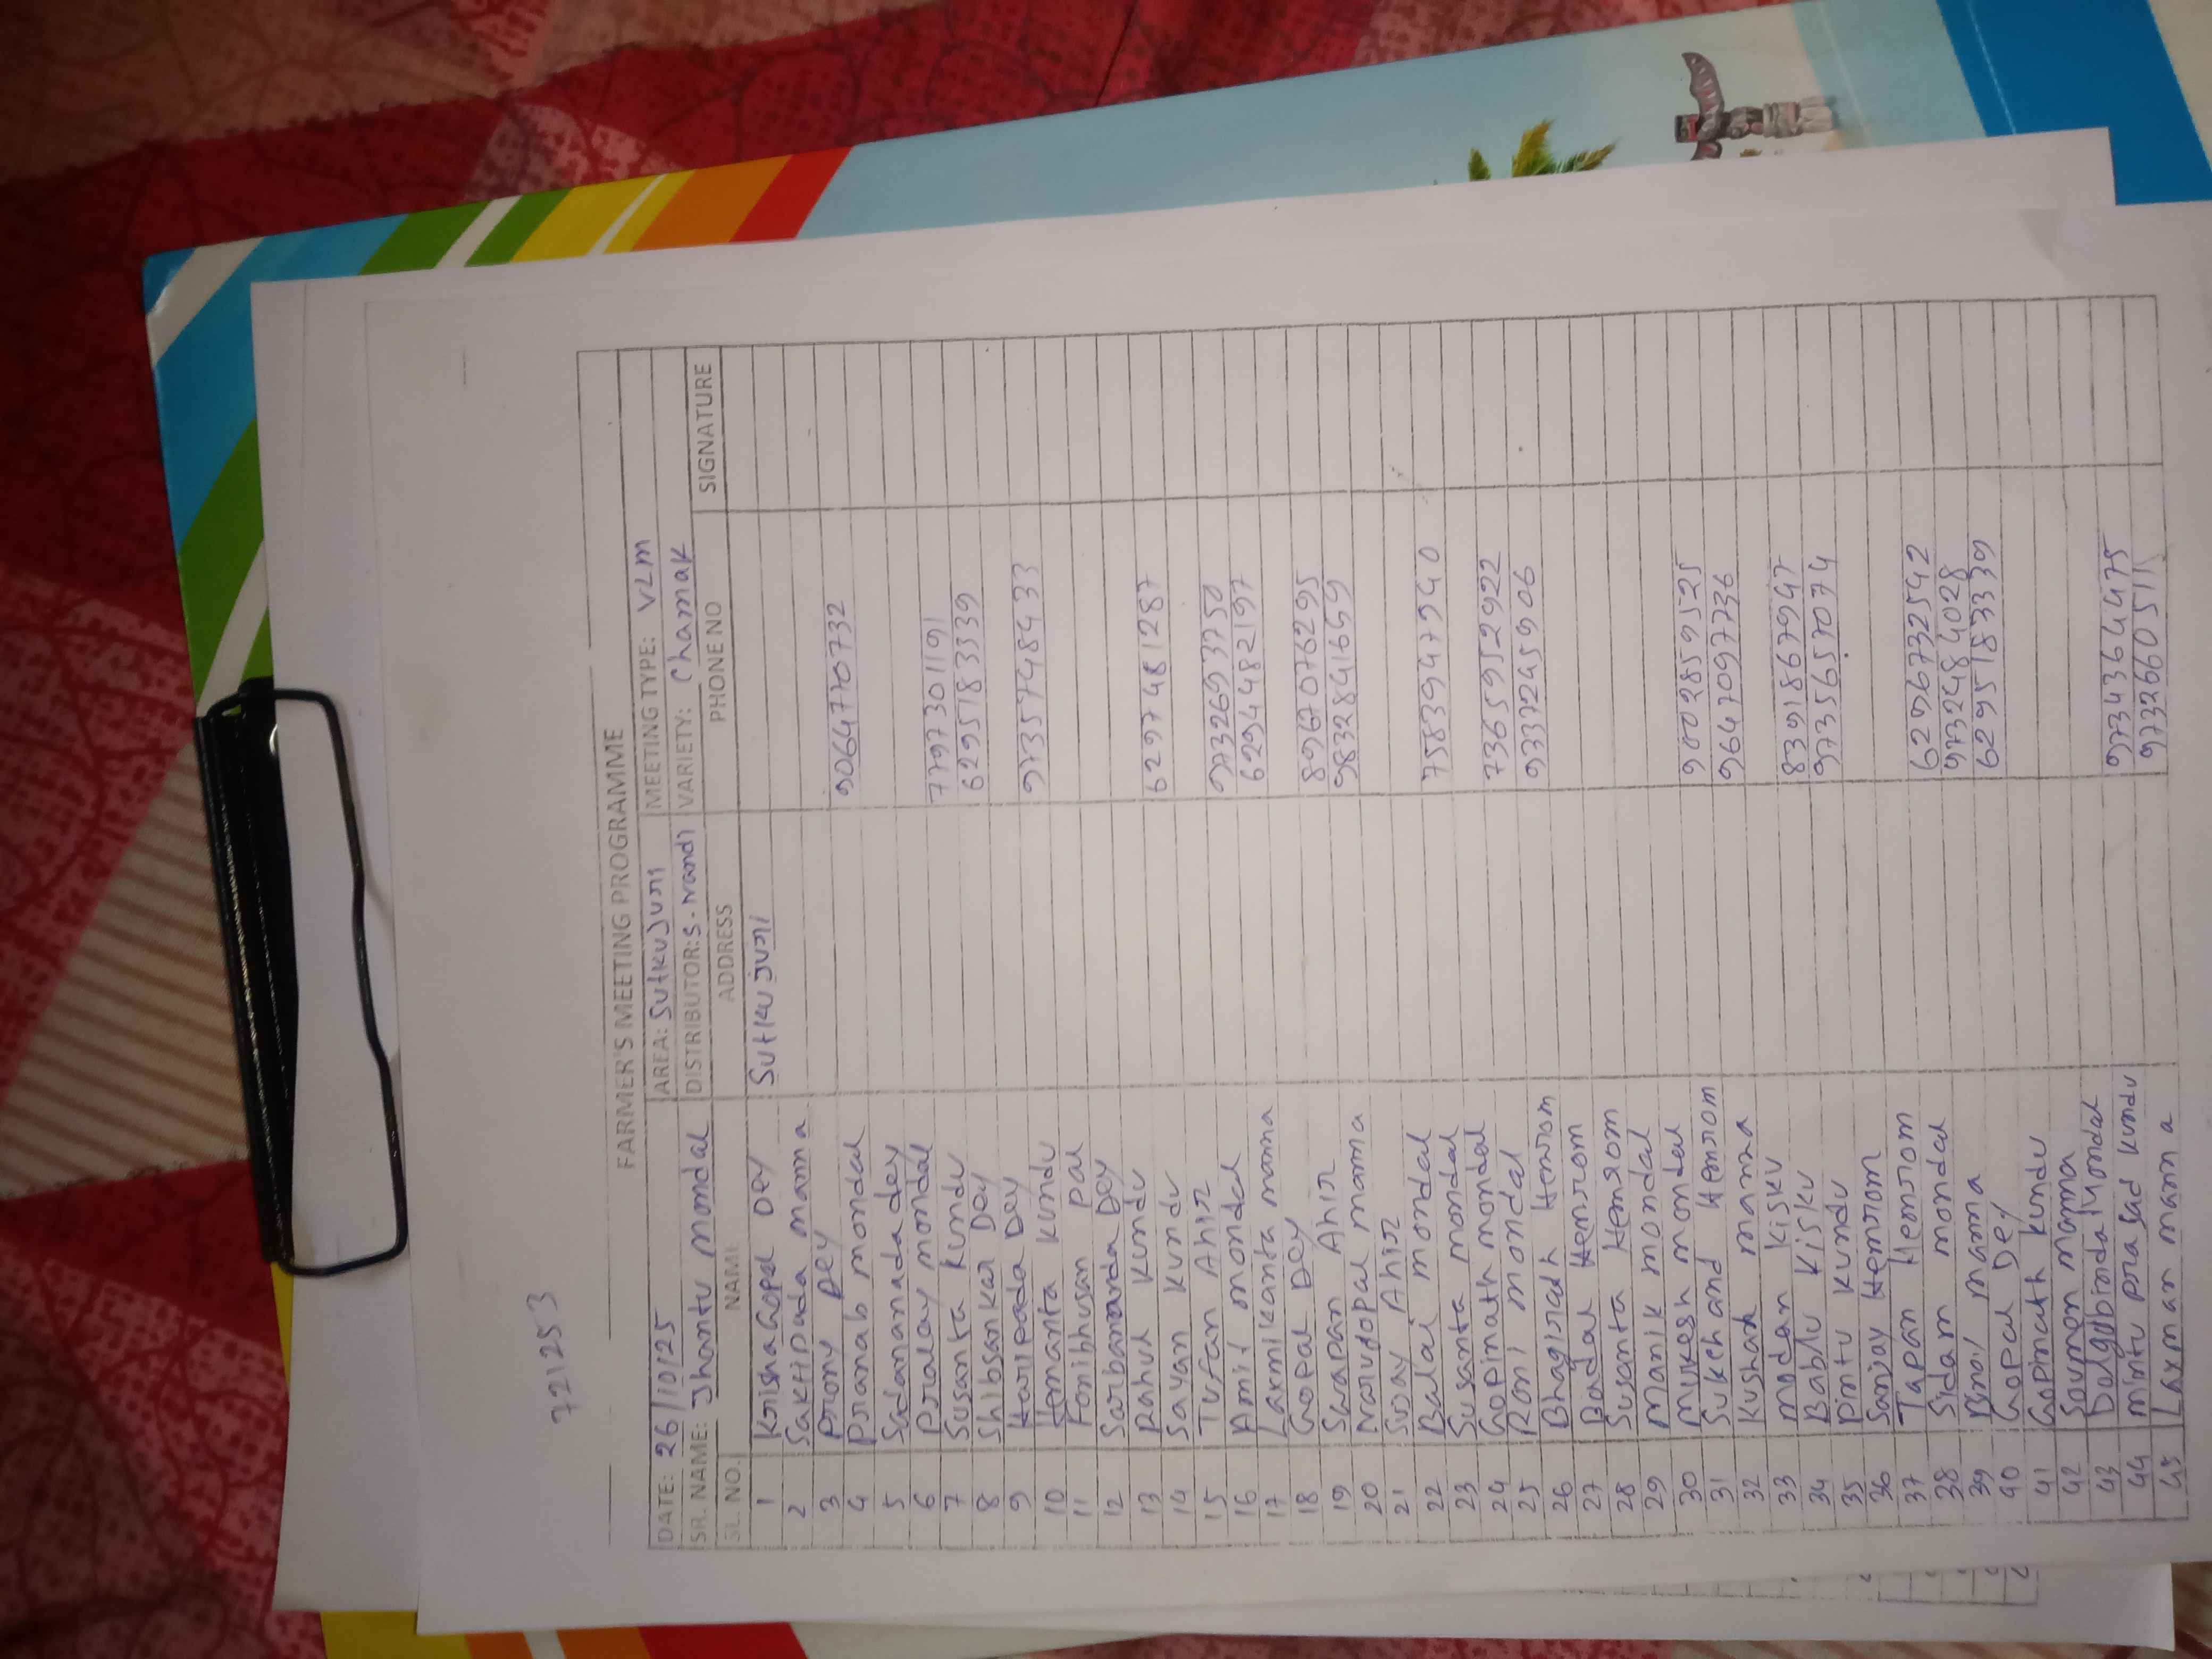 721253
FARMER'S MEETING PROGRAMME
DATE: 26/10/25 AREA: Sutkujuri MEETING TYPE: VLM
SR. NAME: Jhantu Mondal DISTRIBUTOR: S. Nandi VARIETY: Chamak
SL. NO. NAME ADDRESS PHONE NO SIGNATURE
1 Krishna Gopal Dey Sutkujuri
2 Saktipada manna
3 Prony Dey 9064770732
4 Pranab mondal
5 Sadananada dey
6 Pralay mondal 7797301191
7 Susanta Kundu 6295183339
8 Shibsankar Dey
9 Haripada Dey 9735748433
10 Hemanta Kundu
11 Fonibhusan pal
12 Sarbananda Dey
13 Rahul Kundu 6297481287
14 Sayan Kundu
15 Tufan Ahir 9732693750
16 Amil mondal 6294482197
17 Laxmikanta manna
18 Gopal Dey 8967076295
19 Swapan Ahir 9832841669
20 Narudopal manna
21 Sujoy Ahir
22 Balai mondal 7583947940
23 Susanta mondal
24 Gopinath mondal 7365952922
25 Roni mondal 9337245906
26 Bhagirath Hemrom
27 Badal Hemrom
28 Susanta Hemrom
29 Manik mondal
30 Mukesh mondal 9002859525
31 Sukchand Hemrom 9647097736
32 Kushal manna
33 modan Kisku 8391867947
34 Bablu Kisku 9735657074
35 Pintu Kundu
36 Sanjay Hemrom
37 Tapan Hemrom 6296732542
38 Sidam mondal 9732484028
39 Binoi manna 6295183339
40 Gopal Dey
41 Gopinath Kundu
42 Soumen manna
43 Dalgobinda Mondal 9734364475
44 mintu prasad Kundu 9732660511
45 Laxman manna